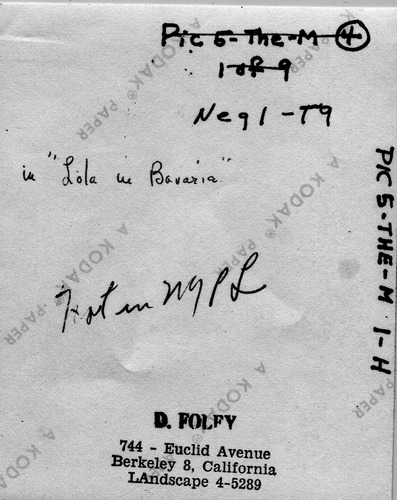 Pic 5-The-M 4
1 of 9
Neg 1 - T9
in "Lola in Bavaria"
Not in NYPL
PIC 5-THE-M 1-H
D. FOLEY
744 - Euclid Avenue
Berkeley 8, California
LAndscape 4-5289
A KODAK® PAPER
A KODAK® PAPER
A KODAK® PAPER
A KODAK